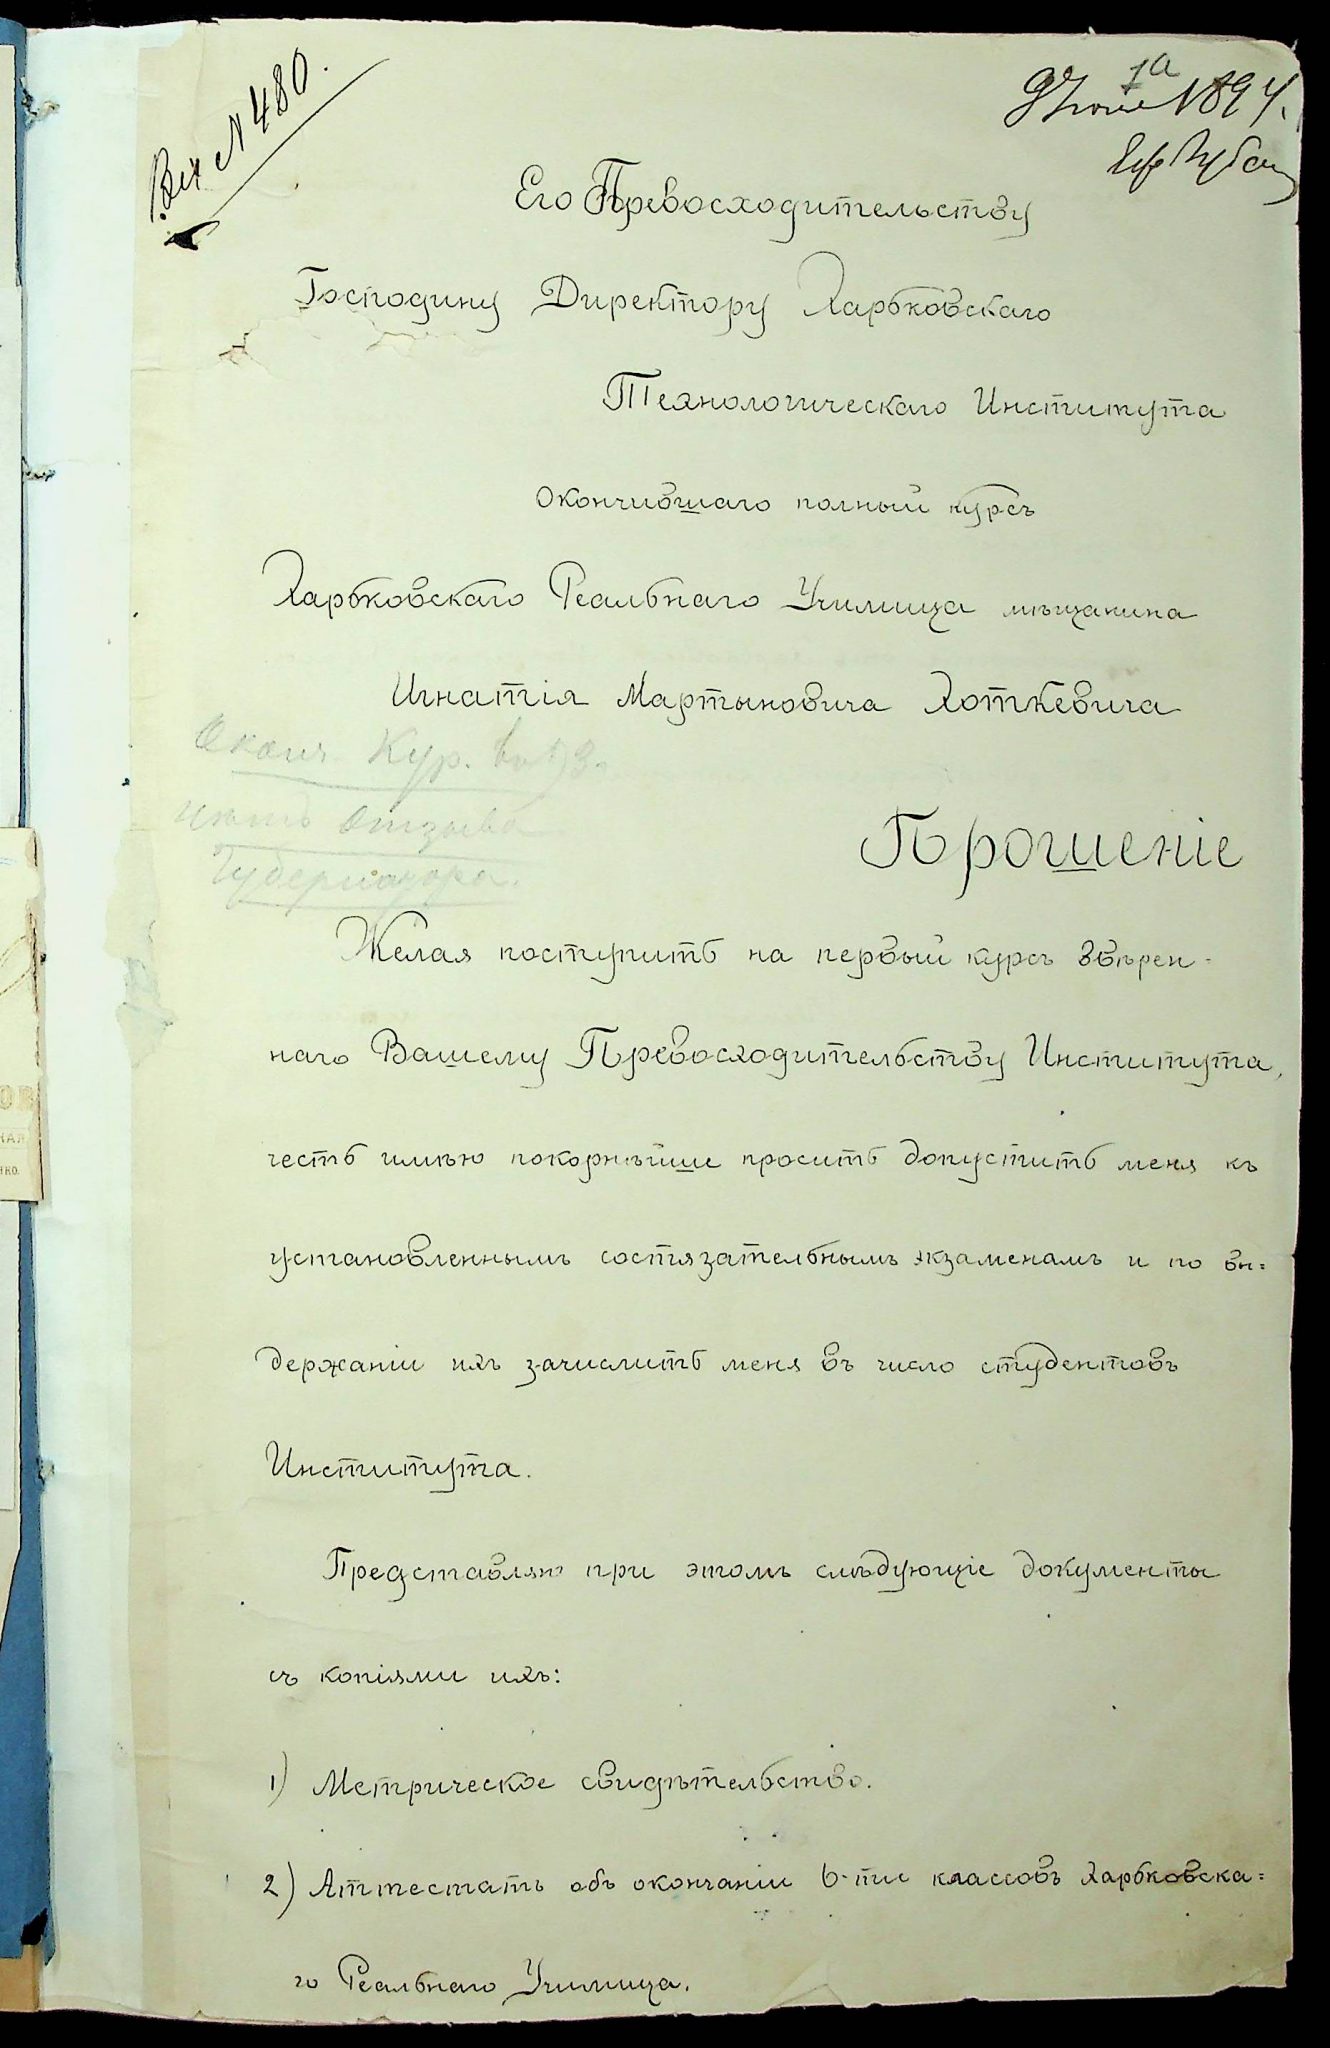 Вх № 480.
1а
9 Июня 1894.
Его Превосходительству
Господину Директору Харьковскаго
Технологическаго Института
окончившаго полный курсъ
Харьковскаго Реальнаго Училища мѣщанина
Игнатія Мартыновича Хоткевича
Оконч. Кур. въ 93.
Нѣтъ отзыва
Губернатора.
Прошеніе
Желая поступить на первый курсъ ввѣрен-
наго Вашему Превосходительству Института,
честь имѣю покорнѣйше просить допустить меня къ
установленнымъ состязательнымъ экзаменамъ и по вы=
держаніи ихъ зачислить меня въ число студентовъ
Института.
Представляю при этомъ слѣдующіе документы
съ копіями ихъ:
1) Метрическое свидѣтельство.
2) Аттестатъ объ окончаніи 6-ти классовъ Харьковска=
го Реальнаго Училища.